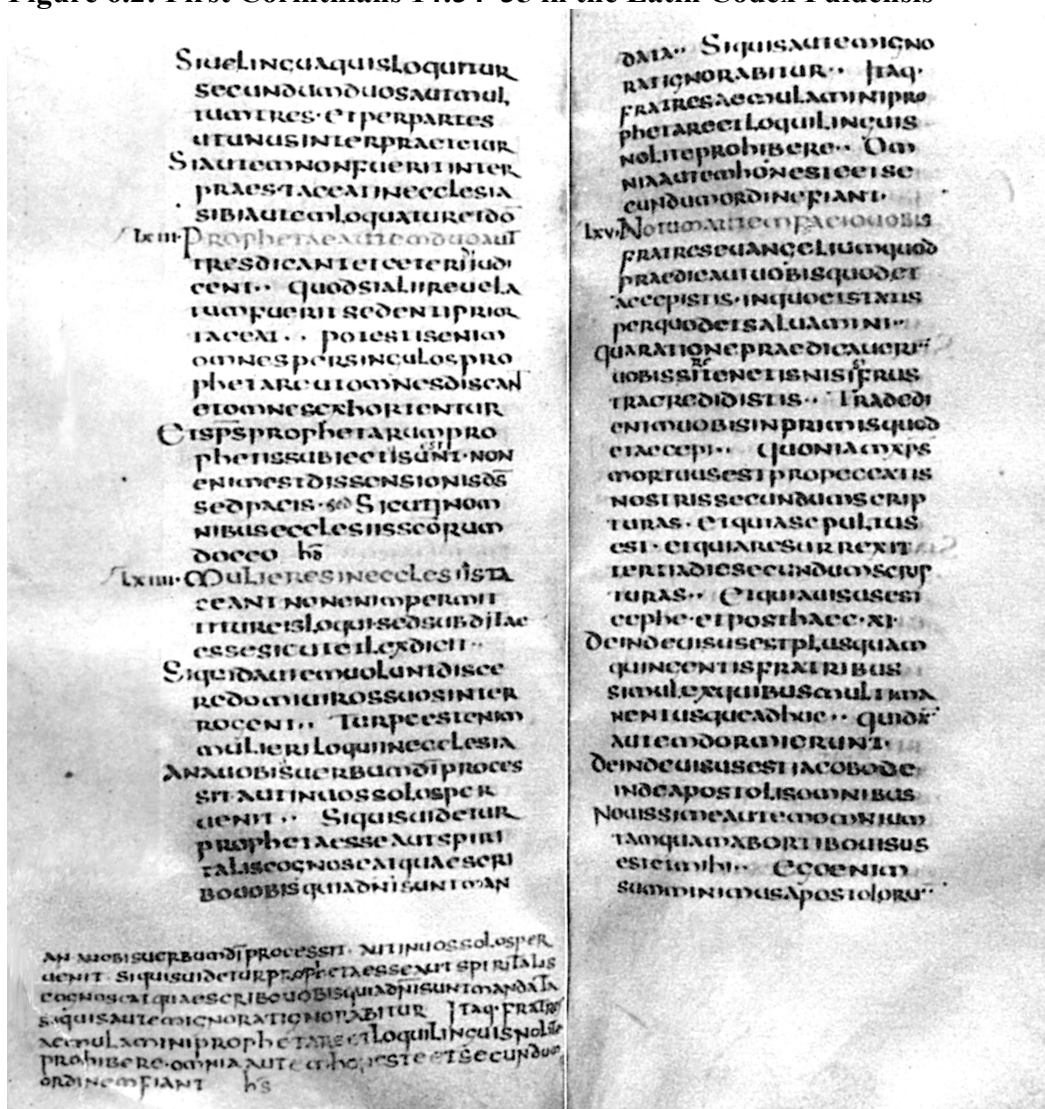 Figure 6.2: First Corinthians 14:34–35 in the Latin Codex Fuldensis
Siue lingua quis loquitur
secundum duos aut mul
tum tres · et per partes
ut unus interpraetetur
Si autem non fuerit inter
praes · taceat in ecclesia
sibi autem loquatur et dō
lxiii · Prophetae autem duo aut
tres dicant et ceteri iudi
cent ·· quod si alii reuela
tum fuerit sedenti prior
taceat ·· potestis enim
omnes per singulos pro
phetare ut omnes discan
et omnes exhortentur
Et sp̄s prophetarum pro
phetis subiecti sunt · non
enim est dissensionis d̄s
sed pacis · Sicut in om
nibus ecclesiis scōrum
doceo hs̄
lxiiii · Mulieres in ecclesiis ta
ceant non enim permit
titur eis loqui sed subditae
esse sicut et lex dicit ··
Si quid autem uolunt disce
re domi uiros suos inter
rogent ·· Turpe est enim
mulieri loqui in ecclesia
An a uobis uerbum dī proces
sit aut in uos solos per
uenit ·· Si quis uidetur
propheta esse aut spiri
talis cognoscat quae scri
bo uobis quia dn̄i sunt man
an a uobis uerbum dī processit · aut in uos solos per
uenit · si quis uidetur propheta esse aut spiritalis
cognoscat quae scribo uobis quia dn̄i sunt mandata
si quis autem ignorat ignorabitur Itaq · fratres
aemulamini prophetare et loqui linguis nolite
prohibere · omnia autem honeste et secundum
ordinem fiant hs̄
data ·· Si quis autem igno
rat ignorabitur ·· Itaq ·
fratres aemulamini pro
phetare et loqui linguis
nolite prohibere ·· Om
nia autem honeste et se
cundum ordine fiant ·
lxv · Notum autem facio uobis
fratres euangelium quod
praedicaui uobis quod et
accepistis · in quo et statis
per quod et saluamini ··
qua ratione praedicauerī
uobis si tenetis nisi frus
tra credidistis ·· Tradedi
enim uobis in primis quod
et accepi ·· quoniam xp̄s
mortuus est pro peccatis
nostris secundum scrip
turas · et quia sepultus
est · et quia resurrexit
tertia die secundum scrip
turas ·· Et quia uisus est
cephe · et post haec · xi ·
Deinde uisus est plus quam
quingentis fratribus
simul ex quibus multi ma
nent usque adhuc ·· quidā
autem dormierunt ·
Deinde uisus est iacobo de
inde apostolis omnibus
Nouissime autem omnium
tamquam abortibo uisus
est et mihi ·· Ego enim
sum minimus apostoloru ··